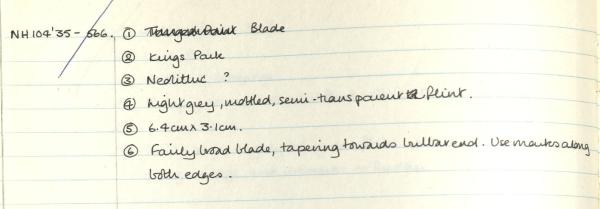 NH104'35-566. ① Blade
② Kings Park
③ Neolithic ?
④ Light grey, mottled, semi-transparent flint.
⑤ 6.4cm x 3.1cm.
⑥ Fairly broad blade, tapering towards bulbar end. Use marks along
both edges.